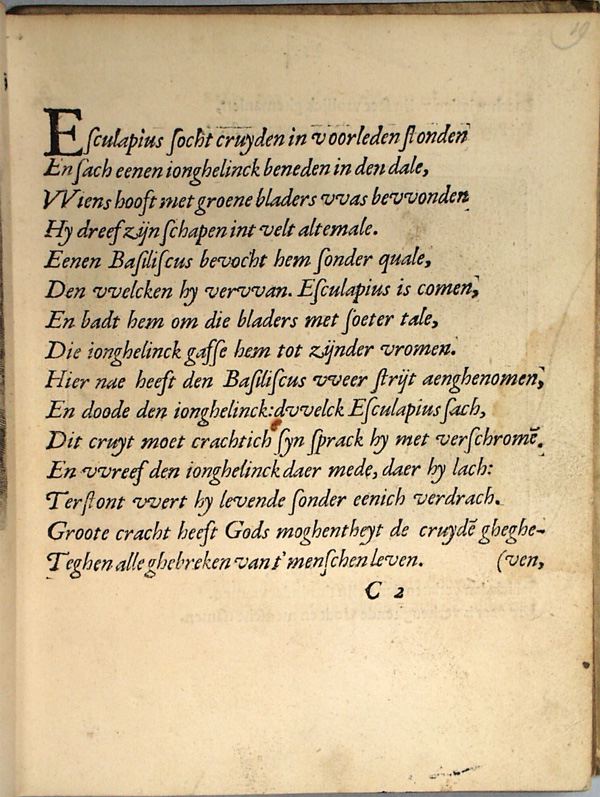 19
Esculapius socht cruyden in voorleden stonden
En sach eenen ionghelinck beneden in den dale,
VViens hooft met groene bladers vvas bevvonden
Hy dreef zijn schapen int velt altemale.
Eenen Basiliscus bevocht hem sonder quale,
Den vvelcken hy vervvan. Esculapius is comen,
En badt hem om die bladers met soeter tale,
Die ionghelinck gaffe hem tot zijnder vromen.
Hier nae heeft den Basiliscus vveer strijt aenghenomen,
En doode den ionghelinck: dvvelck Esculapius sach,
Dit cruyt moet crachtich syn sprack hy met verschromē.
En vvreef den ionghelinck daer mede, daer hy lach:
Terstont vvert hy levende sonder eenich verdrach.
Groote cracht heeft Gods moghentheyt de cruydē gheghe-
Teghen alle ghebreken van t'menschen leven. (ven,
C 2